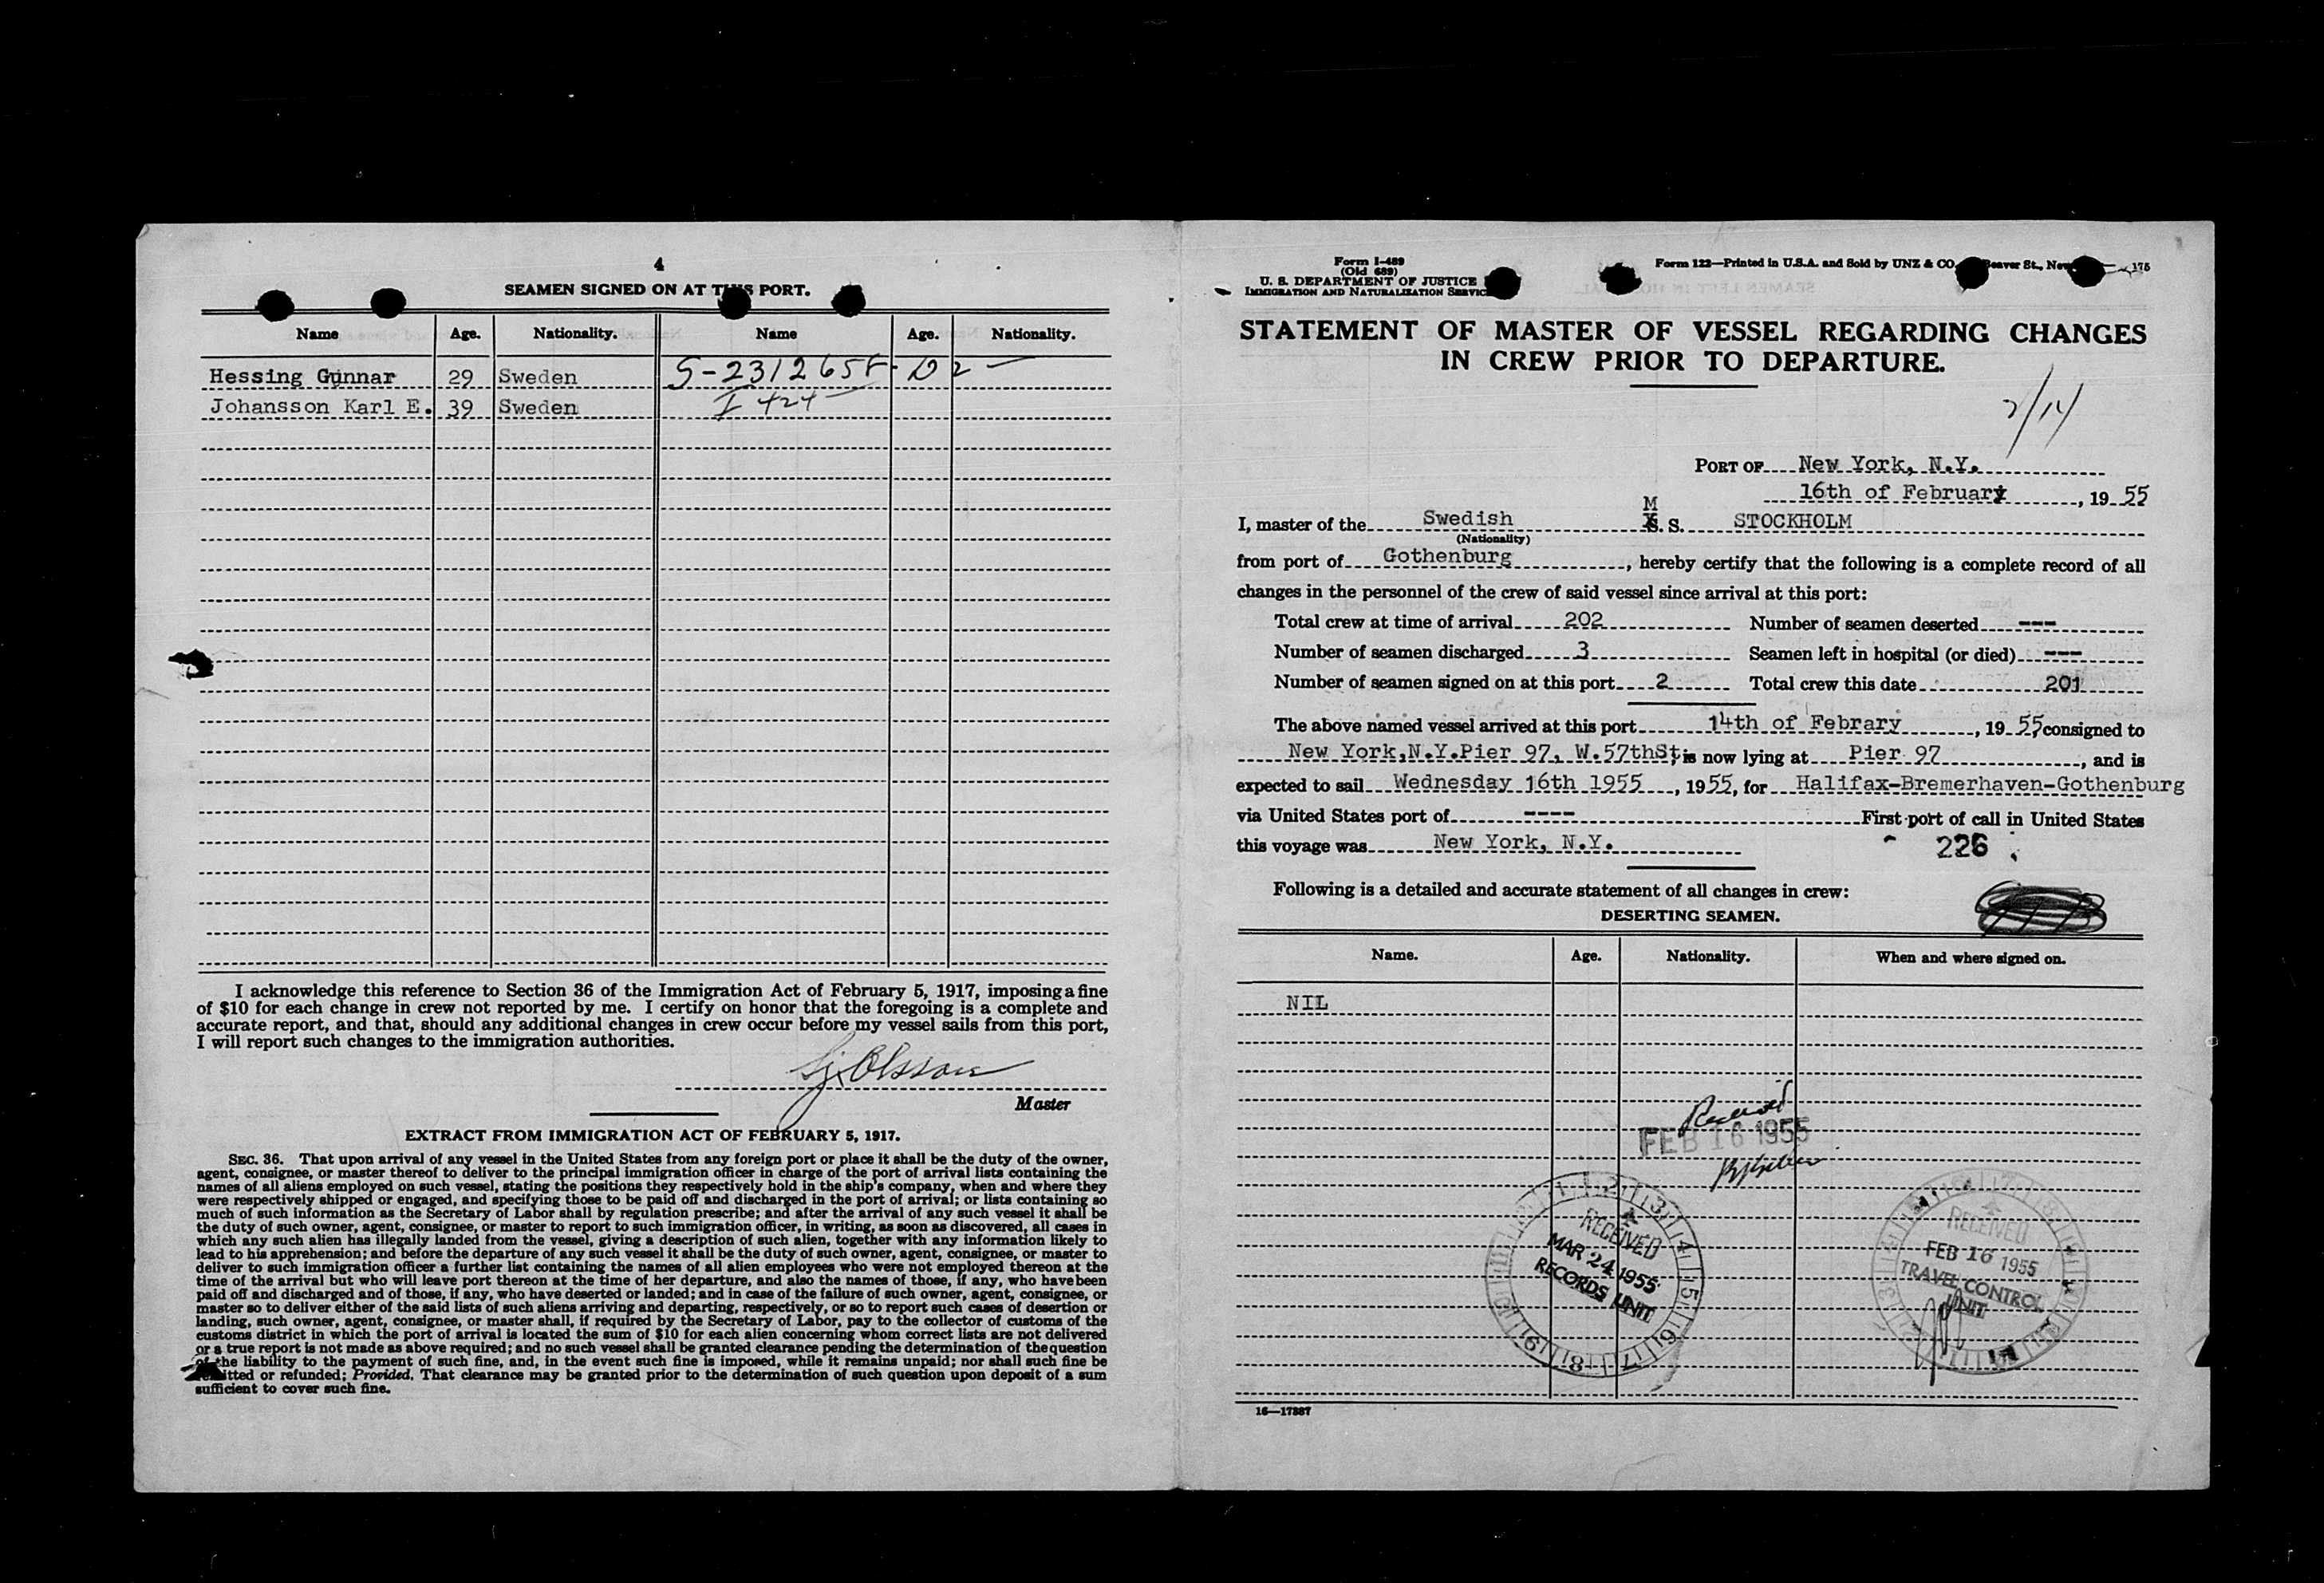 4
SEAMEN SIGNED ON AT THIS PORT.
Name Age. Nationality. Name Age. Nationality.
Hessing Gunnar 29 Sweden S-231265 D2
Johansson Karl E. 39 Sweden I 424
I acknowledge this reference to Section 36 of the Immigration Act of February 5, 1917, imposing a fine
of $10 for each change in crew not reported by me. I certify on honor that the foregoing is a complete and
accurate report, and that, should any additional changes in crew occur before my vessel sails from this port,
I will report such changes to the immigration authorities.
Olsson
Master
EXTRACT FROM IMMIGRATION ACT OF FEBRUARY 5, 1917.
SEC. 36. That upon arrival of any vessel in the United States from any foreign port or place it shall be the duty of the owner,
agent, consignee, or master thereof to deliver to the principal immigration officer in charge of the port of arrival lists containing the
names of all aliens employed on such vessel, stating the positions they respectively hold in the ship's company, when and where they
were respectively shipped or engaged, and specifying those to be paid off and discharged in the port of arrival; or lists containing so
much of such information as the Secretary of Labor shall by regulation prescribe; and after the arrival of any such vessel it shall be
the duty of such owner, agent, consignee, or master to report to such immigration officer, in writing, as soon as discovered, all cases in
which any such alien has illegally landed from the vessel, giving a description of such alien, together with any information likely to
lead to his apprehension; and before the departure of any such vessel it shall be the duty of such owner, agent, consignee, or master to
deliver to such immigration officer a further list containing the names of all alien employees who were not employed thereon at the
time of the arrival but who will leave port thereon at the time of her departure, and also the names of those, if any, who have been
paid off and discharged and of those, if any, who have deserted or landed; and in case of the failure of such owner, agent, consignee, or
master so to deliver either of the said lists of such aliens arriving and departing, respectively, or so to report such cases of desertion or
landing, such owner, agent, consignee, or master shall, if required by the Secretary of Labor, pay to the collector of customs of the
customs district in which the port of arrival is located the sum of $10 for each alien concerning whom correct lists are not delivered
or a true report is not made as above required; and no such vessel shall be granted clearance pending the determination of the question
of the liability to the payment of such fine, and, in the event such fine is imposed, while it remains unpaid; nor shall such fine be
remitted or refunded; Provided, That clearance may be granted prior to the determination of such question upon deposit of a sum
sufficient to cover such fine.
Form I-489
(Old 689)
U. S. DEPARTMENT OF JUSTICE
IMMIGRATION AND NATURALIZATION SERVICE
Form 122—Printed in U.S.A. and Sold by UNZ & CO. Beaver St., New 175
STATEMENT OF MASTER OF VESSEL REGARDING CHANGES
IN CREW PRIOR TO DEPARTURE.
2/14
PORT OF New York, N.Y.
16th of February, 19 55
I, master of the Swedish M S. S. STOCKHOLM
(Nationality)
from port of Gothenburg, hereby certify that the following is a complete record of all
changes in the personnel of the crew of said vessel since arrival at this port:
Total crew at time of arrival 202 Number of seamen deserted ---
Number of seamen discharged 3 Seamen left in hospital (or died) ---
Number of seamen signed on at this port 2 Total crew this date 201
The above named vessel arrived at this port 14th of Febrary, 19 55, consigned to
New York,N.Y.Pier 97, W.57thSt; is now lying at Pier 97, and is
expected to sail Wednesday 16th 1955, 19 55, for Halifax-Bremerhaven-Gothenburg
via United States port of ---- First port of call in United States
this voyage was New York, N.Y. 226
Following is a detailed and accurate statement of all changes in crew:
DESERTING SEAMEN.
Name. Age. Nationality. When and where signed on.
NIL
Received
FEB 16 1955
RECEIVED
MAR 24 1955
RECORDS UNIT
RECEIVED
FEB 16 1955
TRAVEL CONTROL
UNIT
16—17887